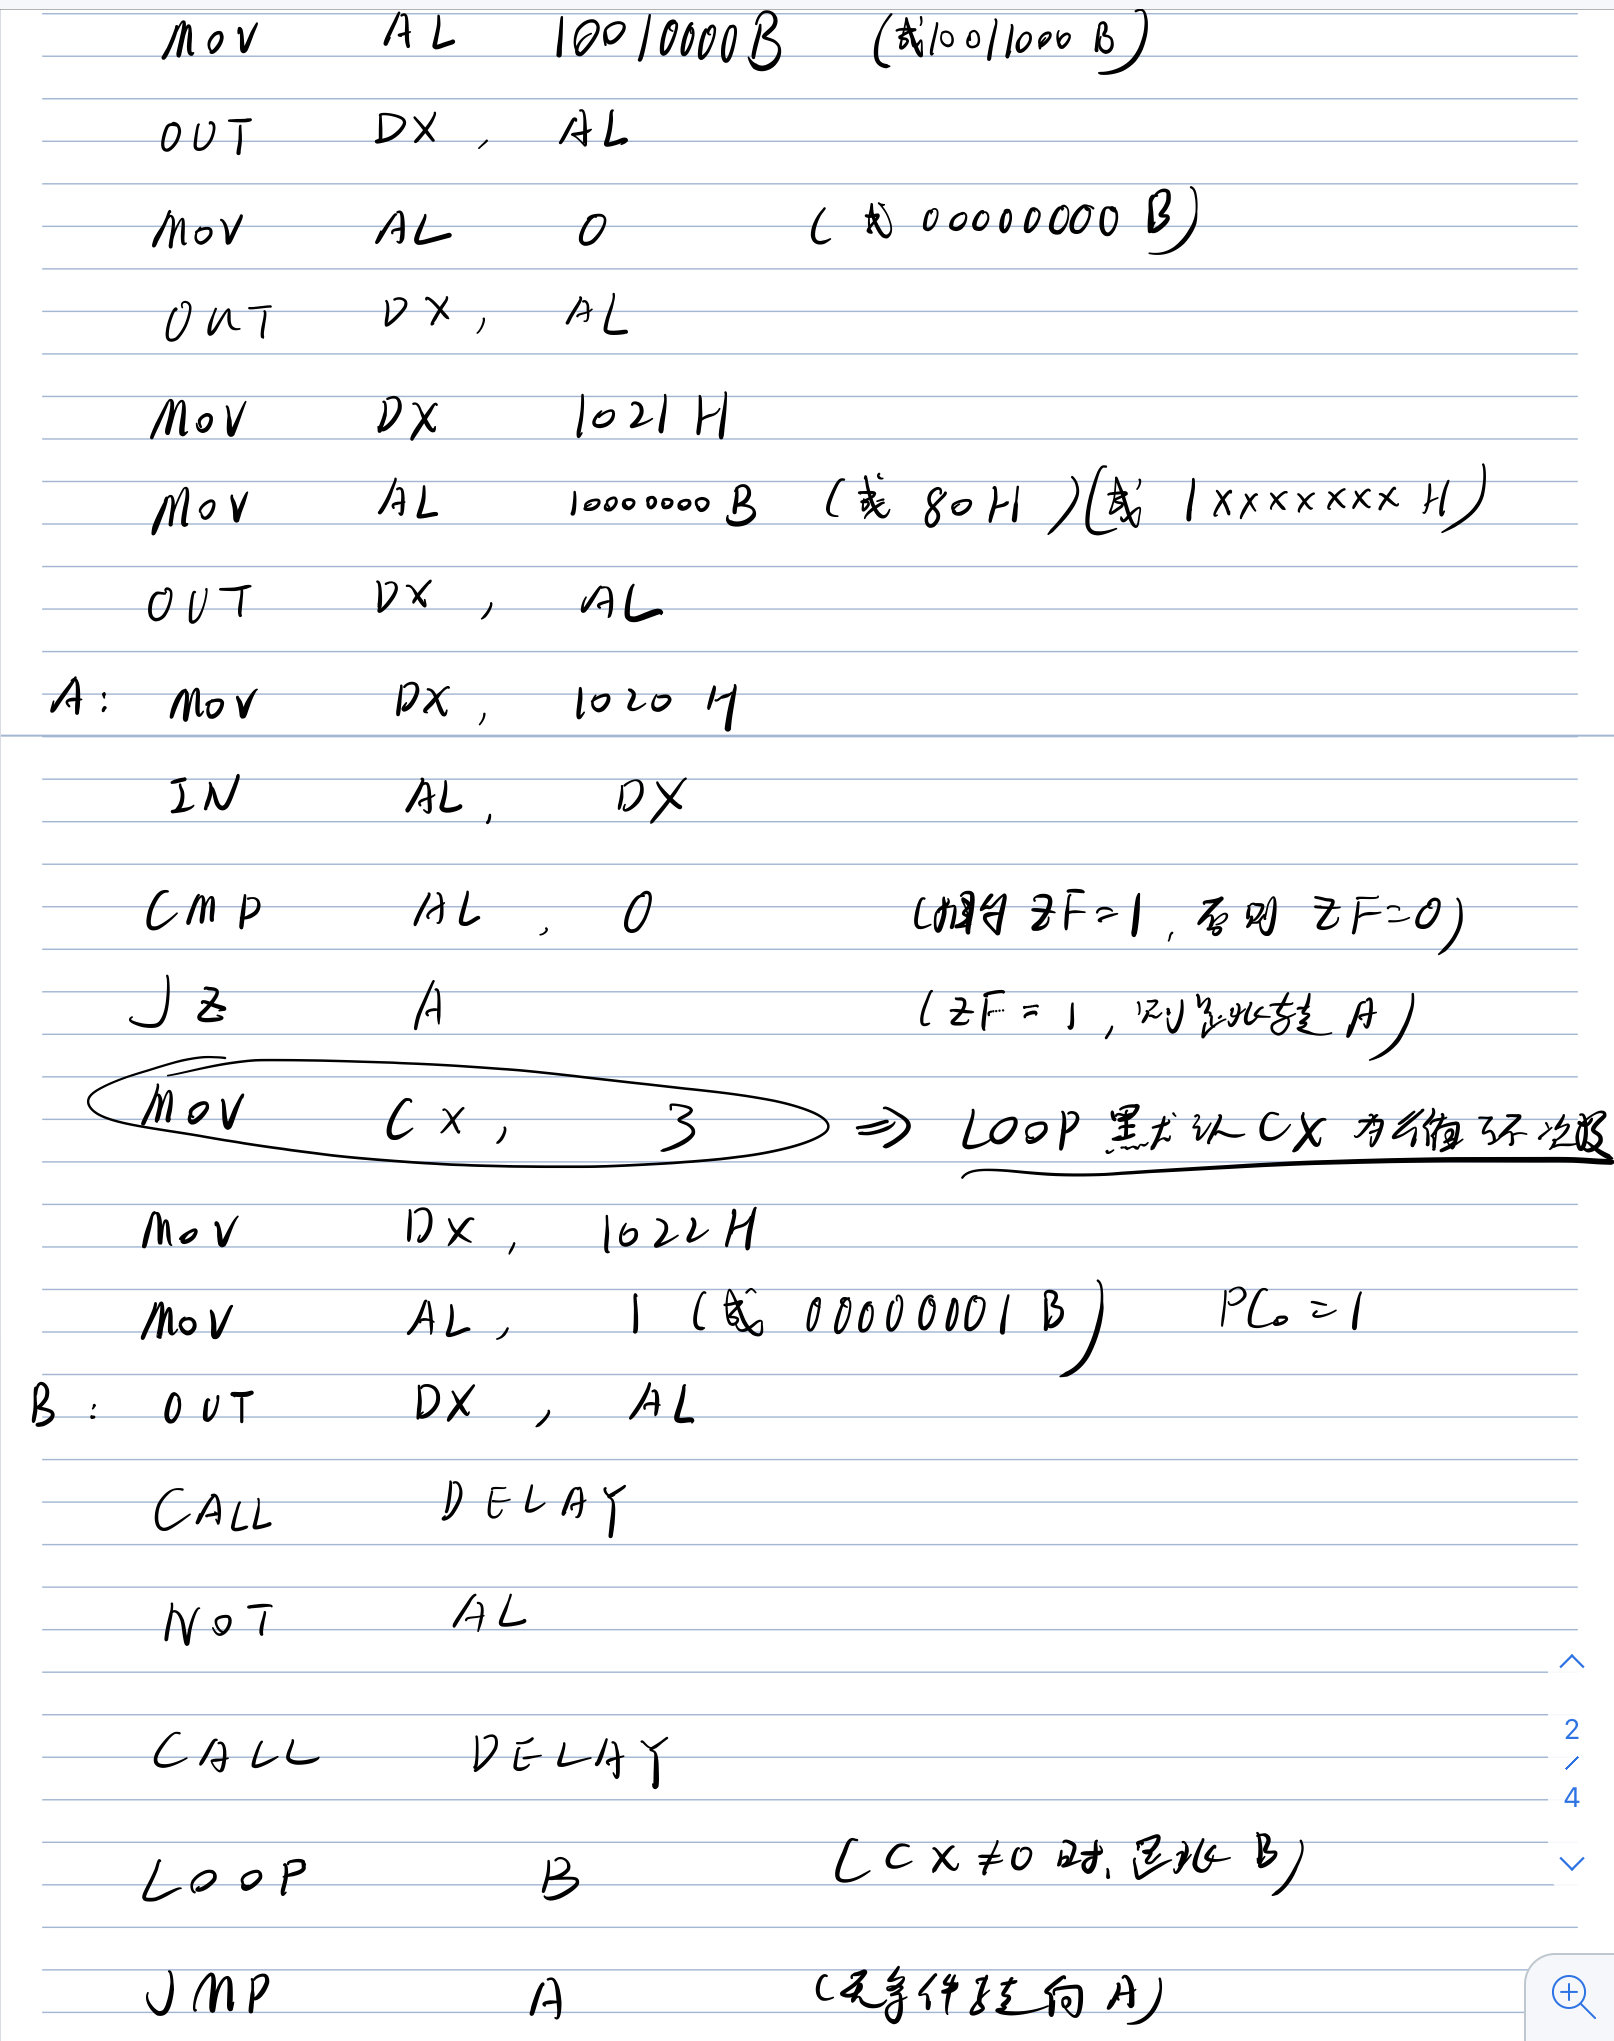 MOV AL 10010000B (或10011000B)
OUT DX, AL
MOV AL 0 (或 00000000 B)
OUT DX, AL
MOV DX 1021H
MOV AL 10000000B (或 80H)(或 1xxxxxxx H)
OUT DX, AL
A: MOV DX, 1020H
IN AL, DX
CMP AL, 0 (相等 ZF=1, 否则 ZF=0)
JZ A (ZF=1, 则跳转 A)
MOV CX, 3 ⇒ LOOP 默认 CX 为循环次数
MOV DX, 1022H
MOV AL, 1 (或 00000001 B) PC₀=1
B: OUT DX, AL
CALL DELAY
NOT AL
CALL DELAY
LOOP B (CX≠0 时, 跳 B)
JMP A (无条件转向 A)
2
/
4